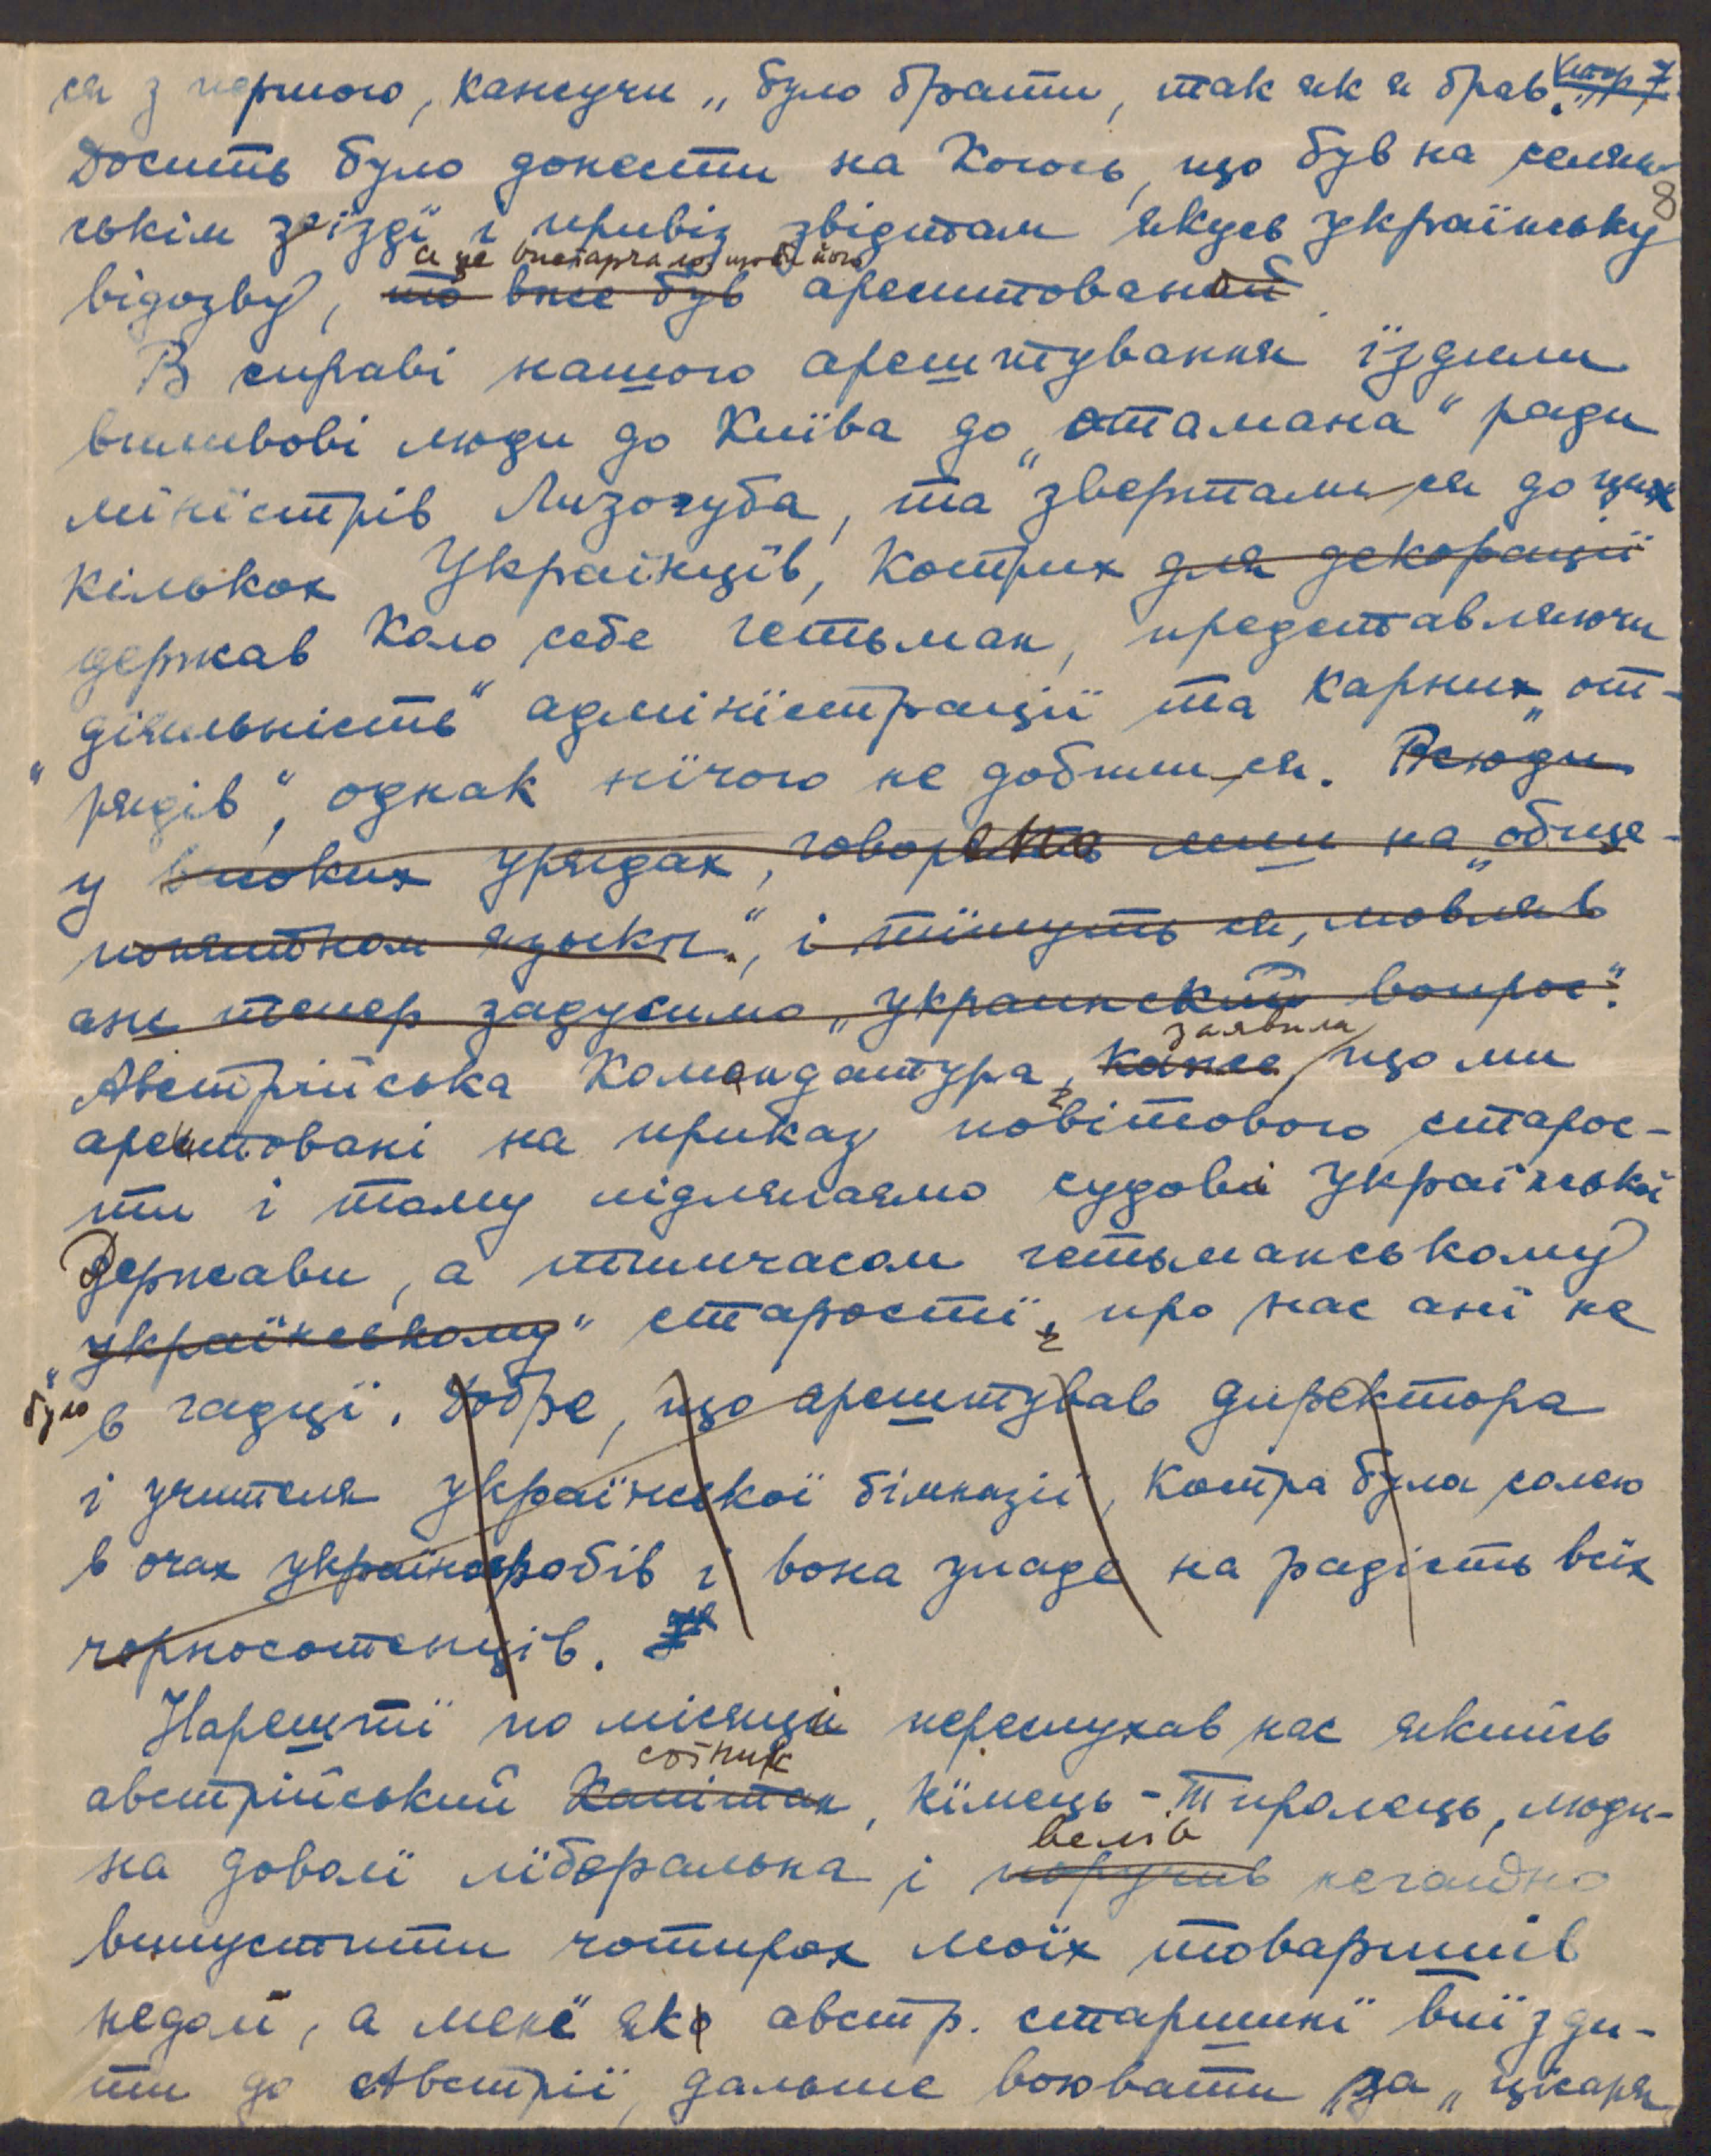 ся з першою, кажучи „було брати, так як я брав."
стор 7
Досить було донести на когось, що був на селян-
8
ськім зʼїзді і привіз звідтам якусь українську
а це вистарчало, щоби його
відозву, то вже був арештований
В справі нашого арештування їздили
впливові люди до Київа до „отамана" ради
міністрів Лизогуба, та зверталися до цих
кількох Українців, котрих для декорації
держав коло себе гетьман, представляючи
„діяльність" адміністрації та карних „от-
рядів", однак нічого не добилися. Всюди
у високих урядах, говорено лиш на „обще-
понятном языкѣ", і тїшуть ся, мовляв
аж тепер задусимо „украинский вопрос".
заявила
Австрійська Командантура, каже що ми
арештовані на приказ повітового старос-
ти і тому підлягаємо судови Української
Держави, а тимчасом гетьманському
„українському" старості, про нас ані не
було
в гадці. Добре, що арештував директора
і учителя української ґімназії, котра була солею
в очах україножробів і вона упаде на радість всіх
чорносотенців.
Нарешті по місяци переслухав нас якийсь
сотник
австрійський капітан, німець-тиролець, люди-
велів
на доволі ліберальна і поручив негайно
випустити чотирох моїх товаришів
недолі, а мені яко австр. старшині виїзди-
ти до Австрії, дальше воювати за „цісаря